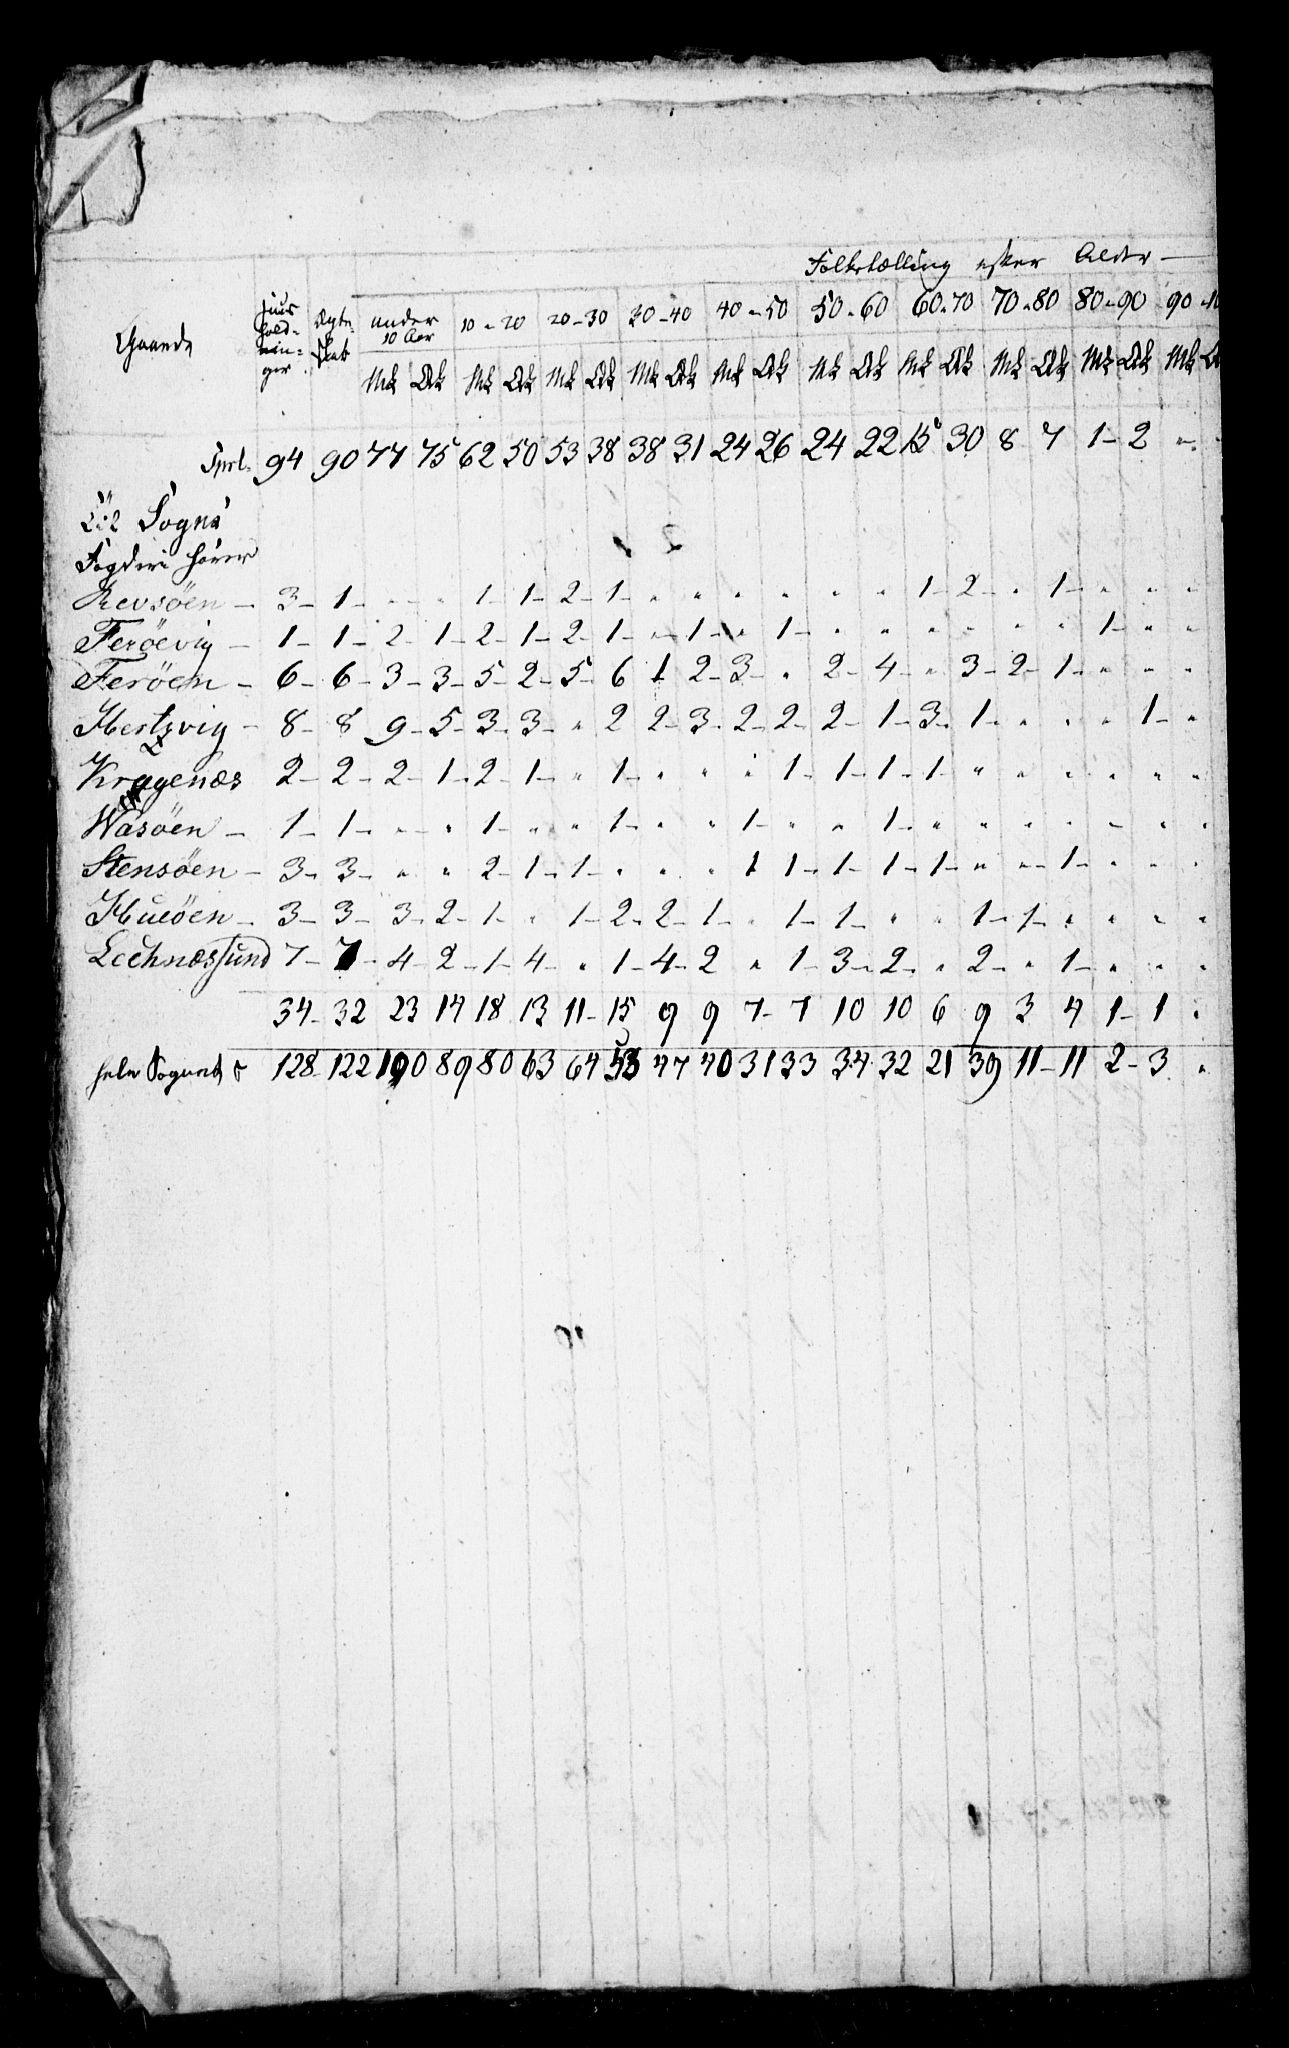 Folketælling efter Alder
Gaarde Huus hold- nin- ger Ægte skab under 10 Aar 10-20 20-30 30-40 40-50 50-60 60-70 70-80 80-90 90-10
Mk Qk Mk Qk Mk Qk Mk Qk Mk Qk Mk Qk Mk Qk Mk Qk Mk Qk Mk Q
94 90 77 75 62 50 53 38 38 31 24 26 24 22 15 30 8 7 1 - 2 " "
Sogns
Fogderi hører
Revsöen - 3 - 1 - " " 1 - 1 - 2 - 1 - " " " " " " 1 - 2 - " 1 - " " "
Feröevig - 1 - 1 - 2 - 1 - 2 - 1 - 2 - 1 - " 1 - " 1 - " " " " " " 1 - " "
Feröen - 6 - 6 - 3 - 3 - 5 - 2 - 5 - 6 1 2 - 3 - " 2 - 4 - " 3 - 2 - 1 - " " "
Hertzvig - 8 - 8 9 - 5 - 3 - 3 - " 2 2 - 3 - 2 - 2 - 2 - 1 - 3 - 1 - " " " 1 - "
Kragenæs 2 - 2 - 2 - 1 - 2 - 1 - " 1 - " " " 1 - 1 - 1 - 1 - " " " " " "
Waasöen - 1 - 1 - " " 1 - " " 1 - " " 1 - " " 1 - " " " " " " "
Stensöen - 3 - 3 - " " 2 - 1 - 1 - " " " 1 1 - 1 - 1 - 1 - " " 1 - " " "
Hueöen - 3 - 3 - 3 - 2 - 1 - " 1 - 2 - 2 - 1 - " 1 - 1 - " " 1 - 1 - " " " "
Lechnæssund 7 - 7 - 4 - 2 - 1 - 4 - " 1 - 4 - 2 " 1 - 3 - 2 - " 2 - " 1 - " " "
34 - 32 23 14 18 13 11 - 15 9 9 7 - 7 10 10 6 9 3 4 1 - 1 "
hele Sognet 128 - 122 100 89 80 63 64 53 47 40 31 33 34 32 21 39 11 - 11 2 - 3 "